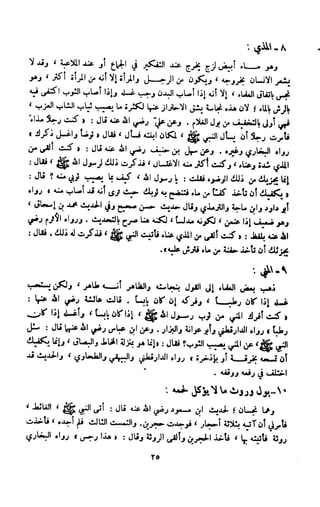 ٨ – المذي :
وهو ماء أبيض لزج يخرج عند التفكير في الجماع أو عند الملاعبة ، وقد لا
يشعر الانسان بخروجه ، ويكون من الرجل والمرأة إلا أنه من المرأة أكثر ، وهو
نجس باتفاق العلماء ، إلا أنه إذا أصاب البدن وجب غسله وإذا أصاب الثوب اكتفى فيه
بالرش بالماء ، لان هذه نجاسة يشق الاحتراز عنها لكثرة ما يصيب ثياب الشاب العزب ،
فهي أولى بالتخفيف من بول الغلام . وعن علي رضي الله عنه قال : « كنت رجلا مذاء
فأمرت رجلا أن يسأل النبي ﷺ ، لمكان ابنته فسأل ، فقال : توضأ واغسل ذكرك »
رواه البخاري وغيره . وعن سهل بن حنيف رضي الله عنه قال : « كنت ألقى من
المذي شدة وعناء ، وكنت أكثر منه الاغتسال ، فذكرت ذلك لرسول الله ﷺ ، فقال :
إنما يجزيك من ذلك الوضوء فقلت : يا رسول الله ، كيف بما يصيب ثوبي منه ؟ قال :
يكفيك أن تأخذ كفا من ماء فتنضح به ثوبك حيث ترى أنه قد أصاب منه » رواه
أبو داود وابن ماجة والترمذي وقال حديث حسن صحيح وفي الحديث محمد بن إسحاق ،
وهو ضعيف إذا عنعن ، لكونه مدلسا ، لكنه هنا صرح بالتحديث . ورواه الأثرم رضي
الله عنه بلفظ : « كنت ألقى من المذي عناء فأتيت النبي ﷺ فذكرت له ذلك ، فقال :
يجزئك أن تأخذ حفنة من ماء فترش عليه » .
٩ – المني :
ذهب بعض العلماء إلى القول بنجاسته والظاهر أنه طاهر ، ولكن يستحب
غسله إذا كان رطبا ، وفركه إن كان يابسا . قالت عائشة رضي الله عنها :
« كنت أفرك المني من ثوب رسول الله ﷺ إذا كان يابسا ، وأغسله إذا كان
رطبا » رواه الدارقطني وأبو عوانة والبزار . وعن ابن عباس رضي الله عنهما قال : سئل
النبي ﷺ عن المني يصيب الثوب ؟ فقال : « إنما هو بمنزلة المخاط والبصاق ، وإنما يكفيك
أن تمسحه بخرقة أو بإذخرة » رواه الدارقطني والبيهقي والطحاوي ، والحديث قد
اختلف في رفعه ووقفه .
١٠ – بول وروث ما لا يؤكل لحمه :
وهما نجسان ، لحديث ابن مسعود رضي الله عنه قال : أتى النبي ﷺ الغائط ،
فأمرني أن آتيه بثلاثة أحجار ، فوجدت حجرين . والتمست الثالث فلم أجده ، فأخذت
روثة فأتيته بها ، فأخذ الحجرين وألقى الروثة وقال : « هذا رجس » رواه البخاري
٢٥